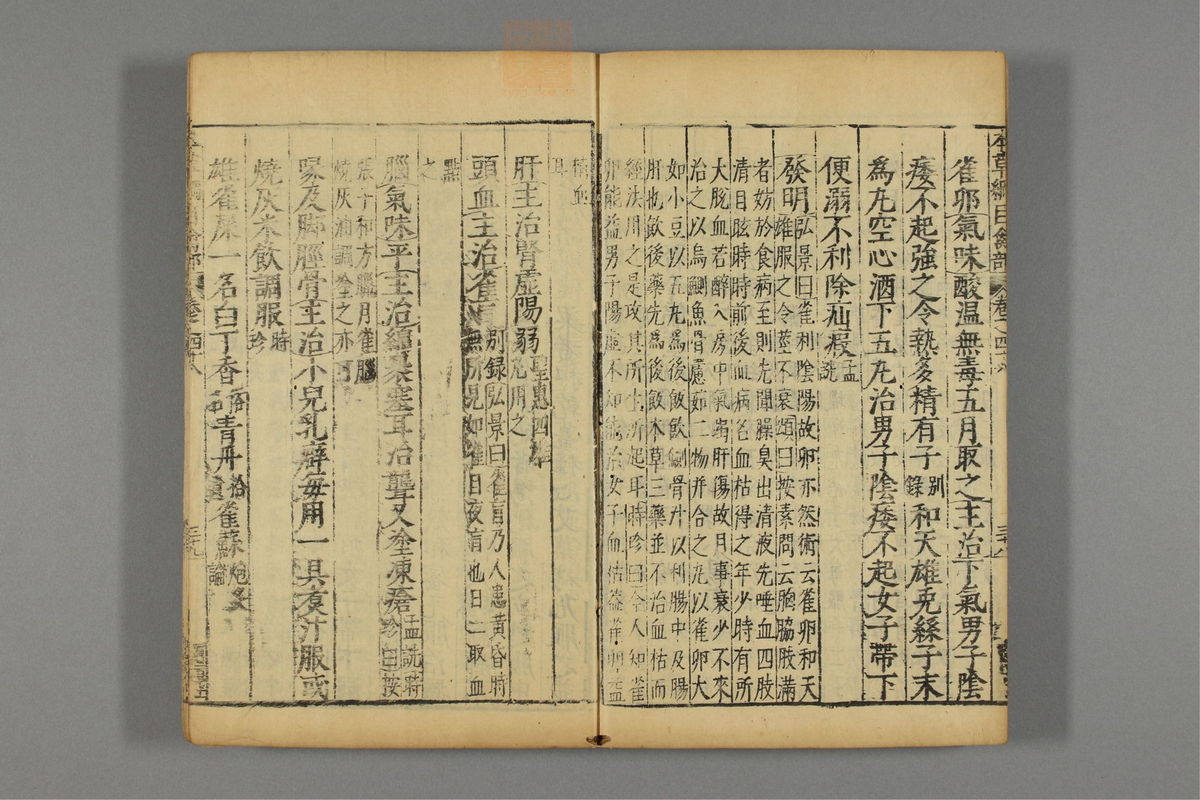 本草綱目禽部 卷之四十八
雀卵氣味酸温無毒五月取之主治下氣男子陰
痿不起強之令熱多精有子别錄和天雄兎絲子末
為丸空心酒下五丸治男子陰痿不起女子帶下
便溺不利除疝瘕孟詵
發明弘景曰雀利陰陽故卵亦然術云雀卵和天
雄服之令莖不衰頌曰按素問云胸脇肢滿
者妨於食病至則先聞臊臭出清液先唾血四肢
清目眩時時前後血病名血枯得之年少時有所
大脫血若醉入房中氣竭肝傷故月事衰少不來
治之以烏鰂魚骨藘茹二物并合之丸以雀卵大
如小豆以五丸為後飯飲鰂骨汁以利腸中及腸
肝也飲後藥先為後飯本草三藥並不治血枯而
經法用之是攻其所生所起耳時珍曰今人知雀
卵能益男子陽虛不知能治女子血枯蓋雀卵益
精血
耳
肝主治腎虛陽弱聖惠四雄
丸用之
頭血主治雀盲别錄弘景曰雀盲乃人患黃昏時
無所見如雀目夜盲也日二取血
點
之
腦氣味平主治綿裹塞耳治聾又塗凍瘡孟詵時
珍曰按
張子和方臘月雀腦
燒灰油調塗之亦可
喙及脚脛骨主治小兒乳癖每用一具煑汁服或
燒灰米飲調服時
珍
雄雀屎一名白丁香俗名青丹拾遺雀蘇炮炙
論